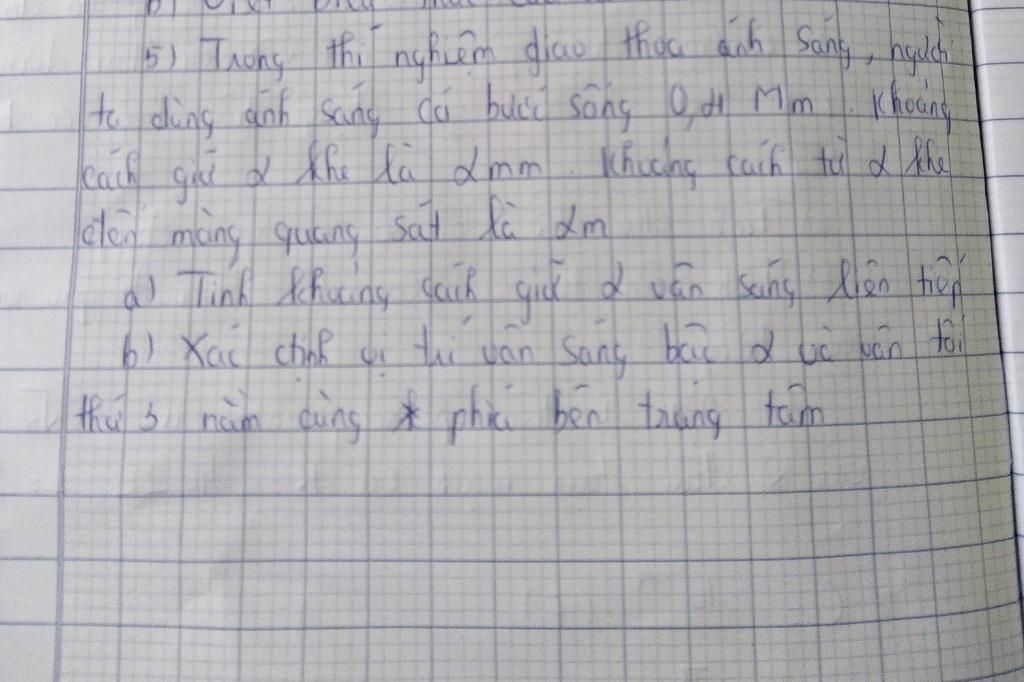 5) Trong thí nghiệm giao thoa ánh sáng, người
ta dùng ánh sáng có bước sóng 0,4 Mm. Khoảng
cách giữ 2 khe là 2mm. Khoảng cách từ 2 khe
đến màng quang sát là 2m
a) Tính khoảng cách giữ 2 vân sáng liên tiếp
b) Xác định vị trí vân sáng bậc 2 và vân tối
thứ 3 nằm cùng phía bên trung tâm